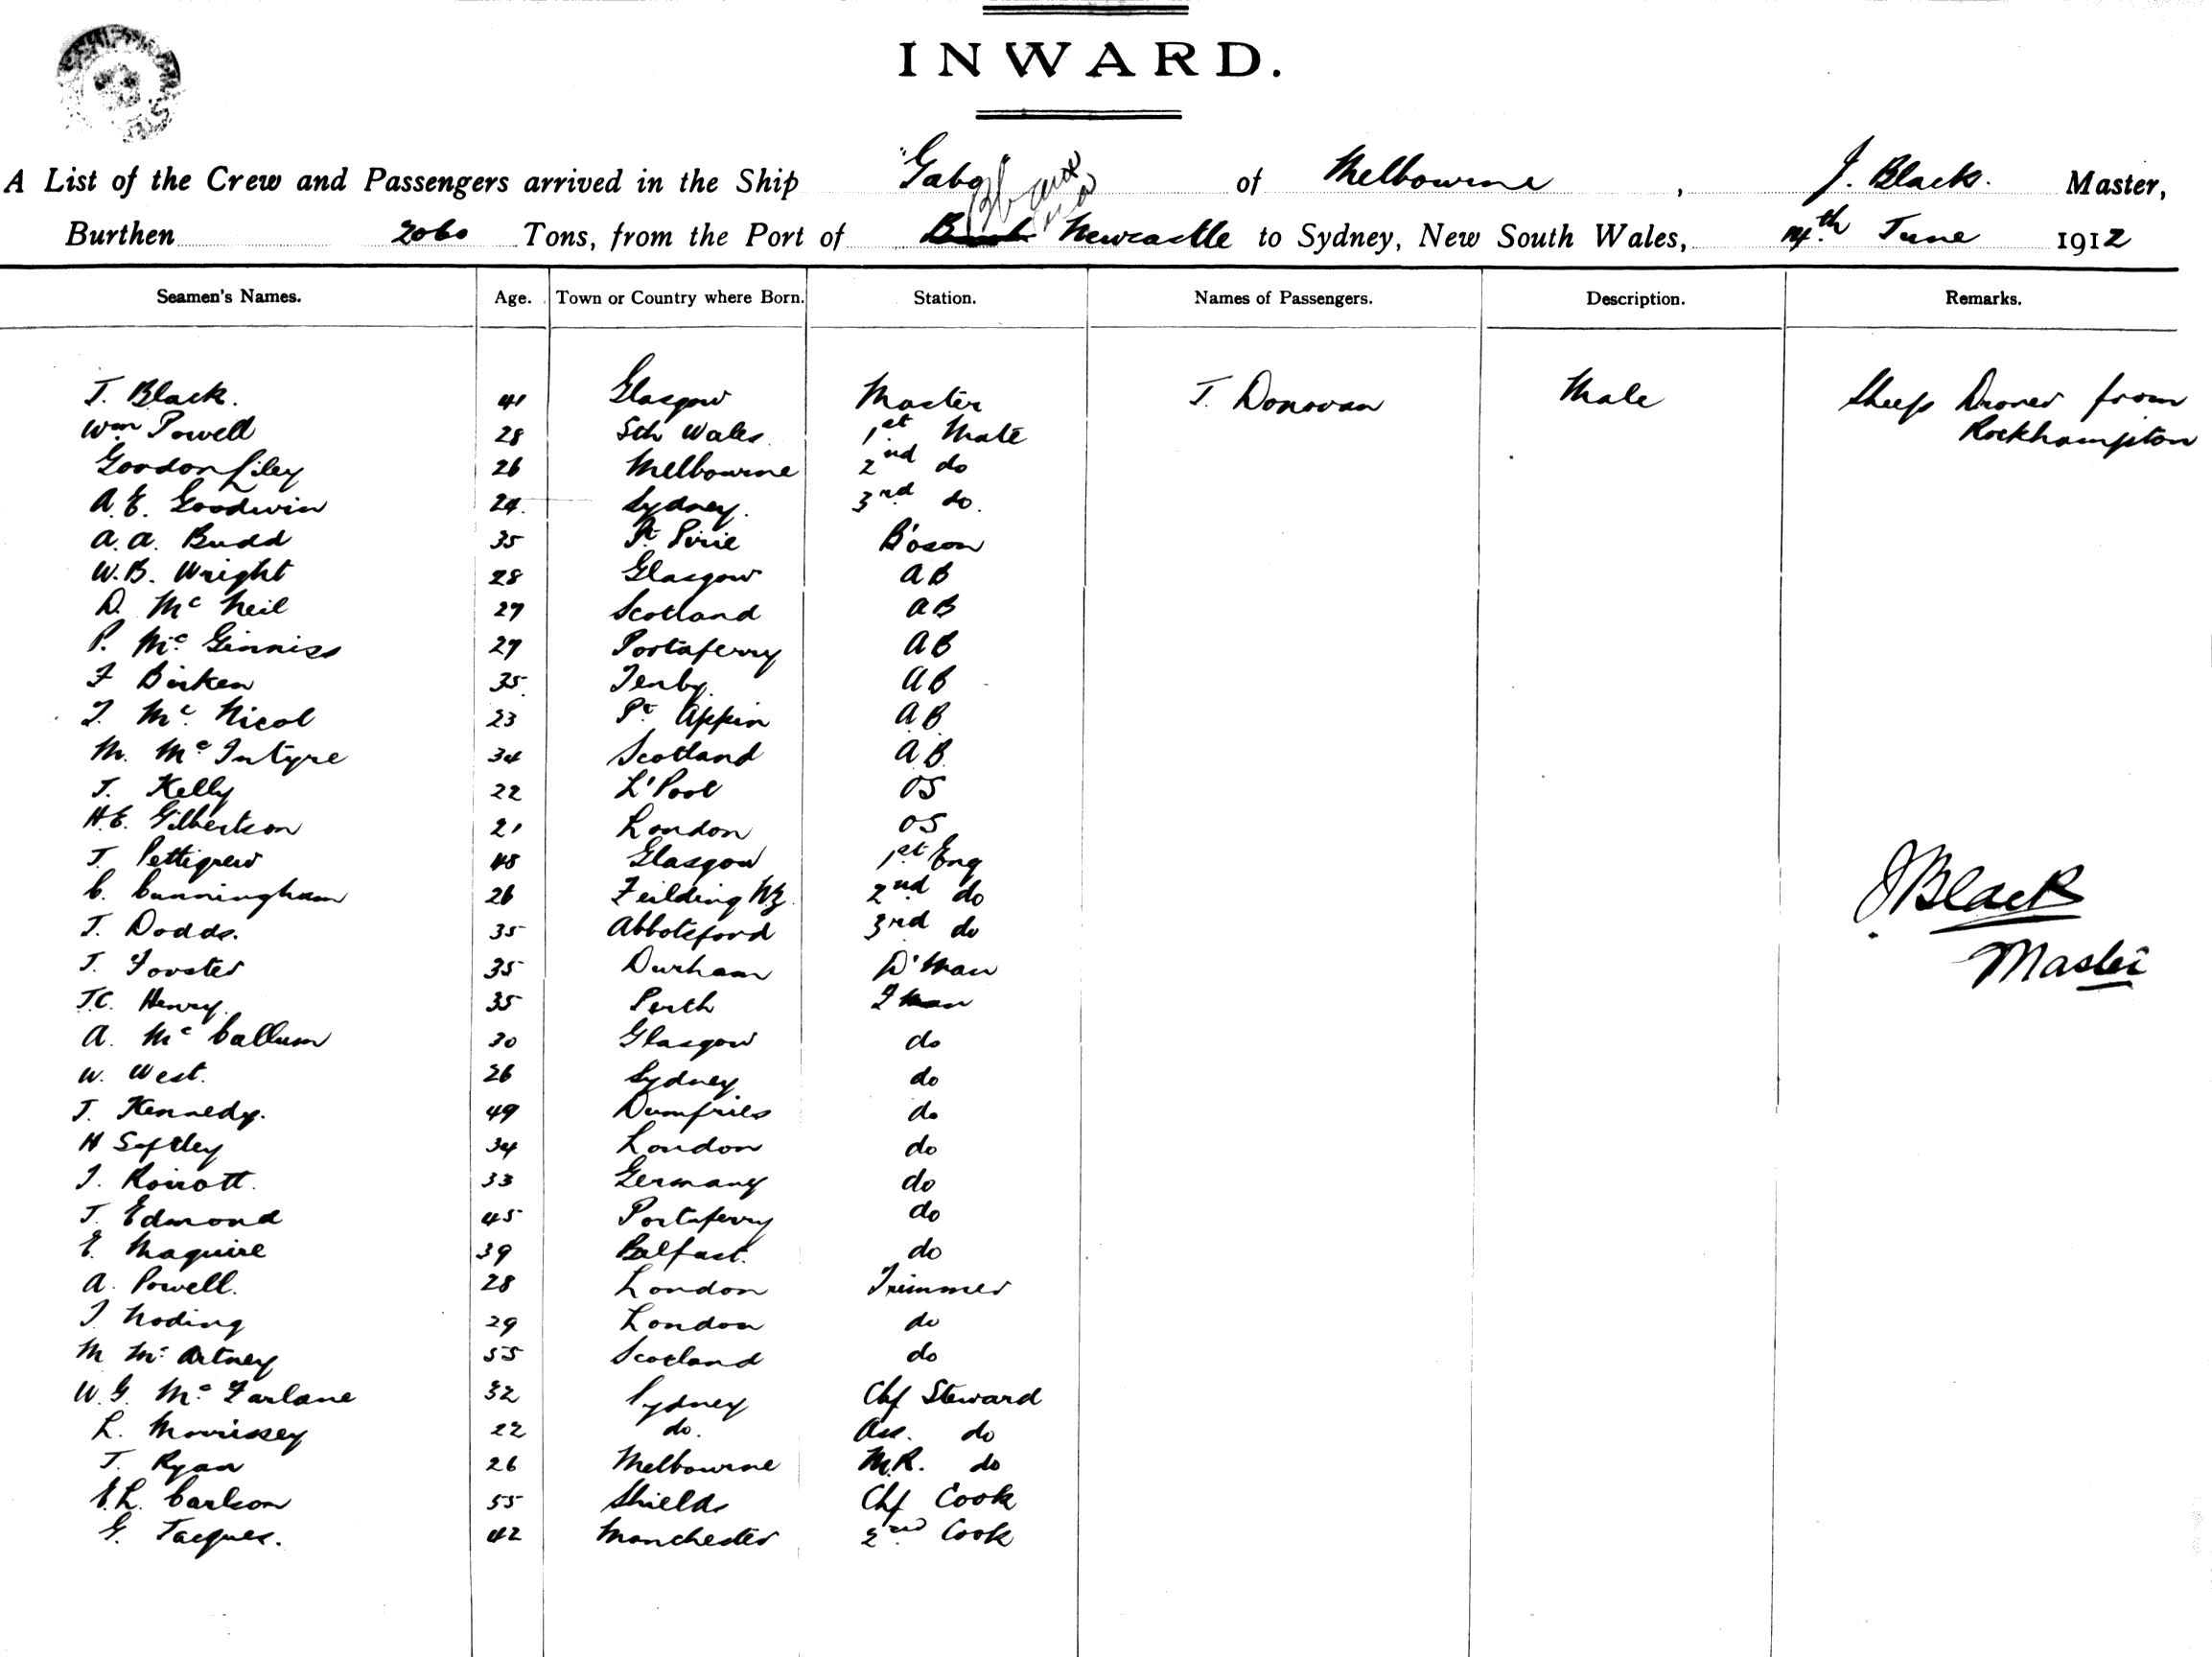 INWARD.
A List of the Crew and Passengers arrived in the Ship "Gabo of Melbourne, J. Black. Master,
Burthen 2060 Tons, from the Port of Newcastle to Sydney, New South Wales, 14th June 1912
Seamen's Names. Age. Town or Country where Born. Station. Names of Passengers. Description. Remarks.
J. Black. 41 Glasgow Master J. Donovan Male Sheep Drover from
Rockhampton
Wm Powell 28 Sth Wales 1st Mate
Gordon Liley 26 Melbourne 2nd do
A. E. Goodwin 24 Sydney. 3rd do.
A. A. Budd 35 Pt Pirie B'oson
W. B. Wright 28 Glasgow AB
D. McNeil 27 Scotland AB
P. McGinniss 29 Portaferry AB
F Birken 35 Tenby. AB
J. McNicol 23 Pt Appin AB
M. McIntyre 34 Scotland AB
J. Kelly 22 L'Pool OS
H.E. Gilbertson 21 London OS
J. Pettigrew 48 Glasgow 1st Eng
C. Cunningham 26 Feilding NZ. 2nd do
J. Dodds. 35 Abbotsford 3rd do
J. Forster 35 Durham D'Man
J.C. Henry. 35 Perth F Man
A. McCallum 30 Glasgow do
W. West. 26 Sydney do
J. Kennedy. 49 Dumfries do
H Softley 34 London do
J. 33 Germany do
J. Edmond 45 Portaferry do
E. Maguire 39 Belfast. do
A. Powell. 28 London Trimmer
J. Noding 29 London do
M McArtney 55 Scotland do
W. G. McFarlane 32 Sydney Chf Steward
L. Morrissey 22 do. Ass. do
J. Ryan 26 Melbourne M.R. do
E.L. Carlson 55 Shields Chf Cook
G. Jacques. 42 Manchester 2nd Cook
J Black
Master